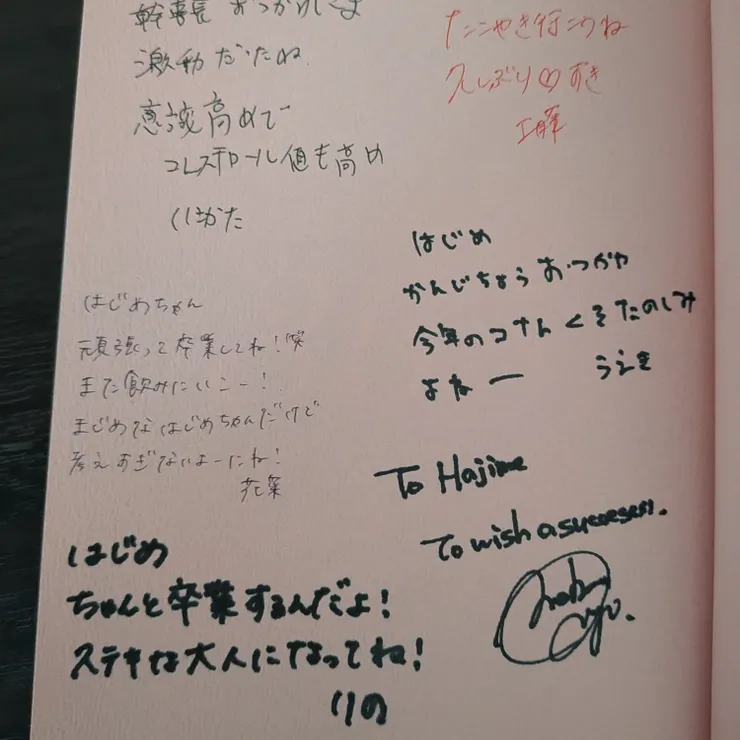 幹事長 おつかれさま
激動だったね
意識高めで
コレステロール値も高め
くぼかた
たこやき行こうね
久しぶり♡すき
工藤
はじめちゃん
頑張って卒業してね!笑
また飲みにいこー!
まじめなはじめちゃんだけど
考えすぎないよーにね!
花菜
はじめ
かんじちょう おつかれ
今年のコナんくそたのしみ
よねー うえき
はじめ
ちゃんと卒業するんだよ!
ステキな大人になってね!
りの
To Hajime
To wish a success.